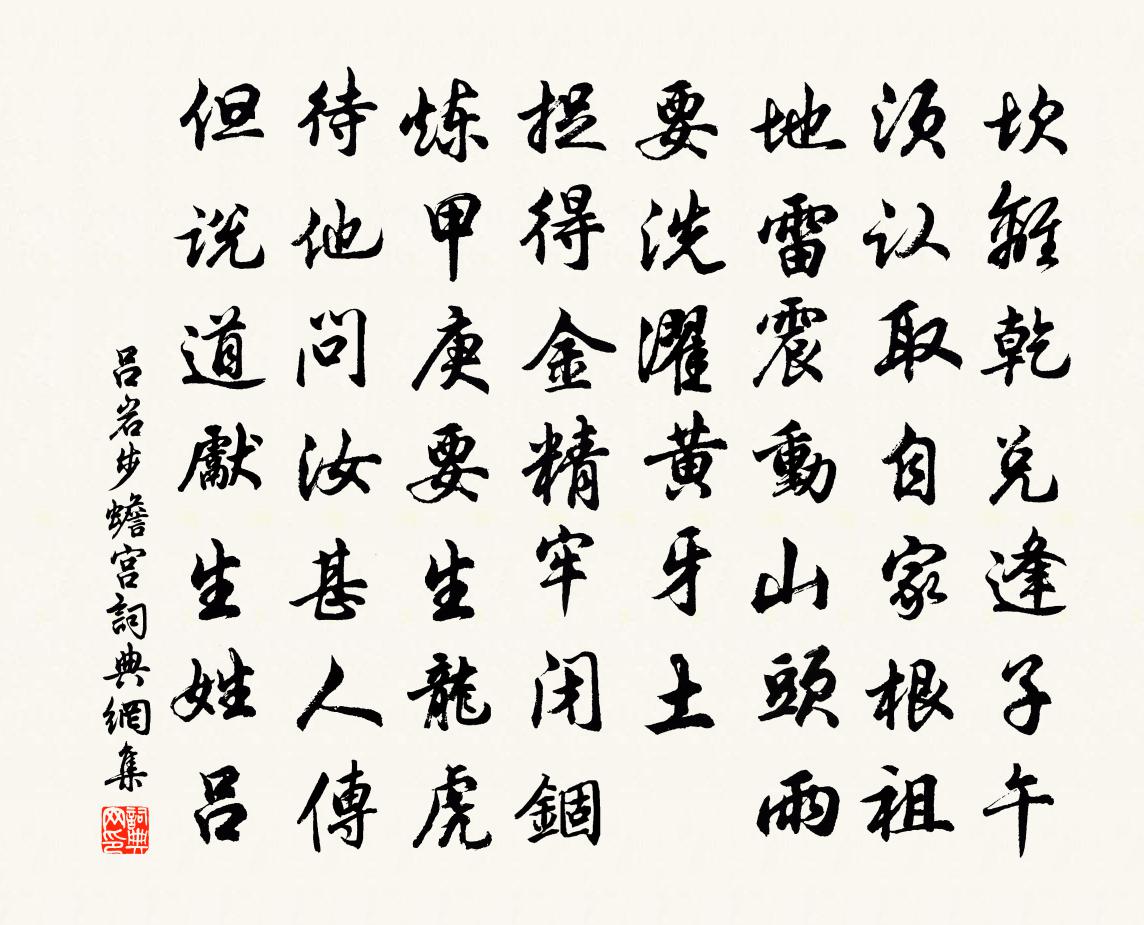 坎離乾兑逢子午
須认取自家根祖
地雷震動山頭雨
要洗濯黄牙土
捉得金精牢闭錮
炼甲庚要生龍虎
待他问汝甚人傳
但说道獻生姓吕
吕岩步蟾宫詞典網集
詞典网印